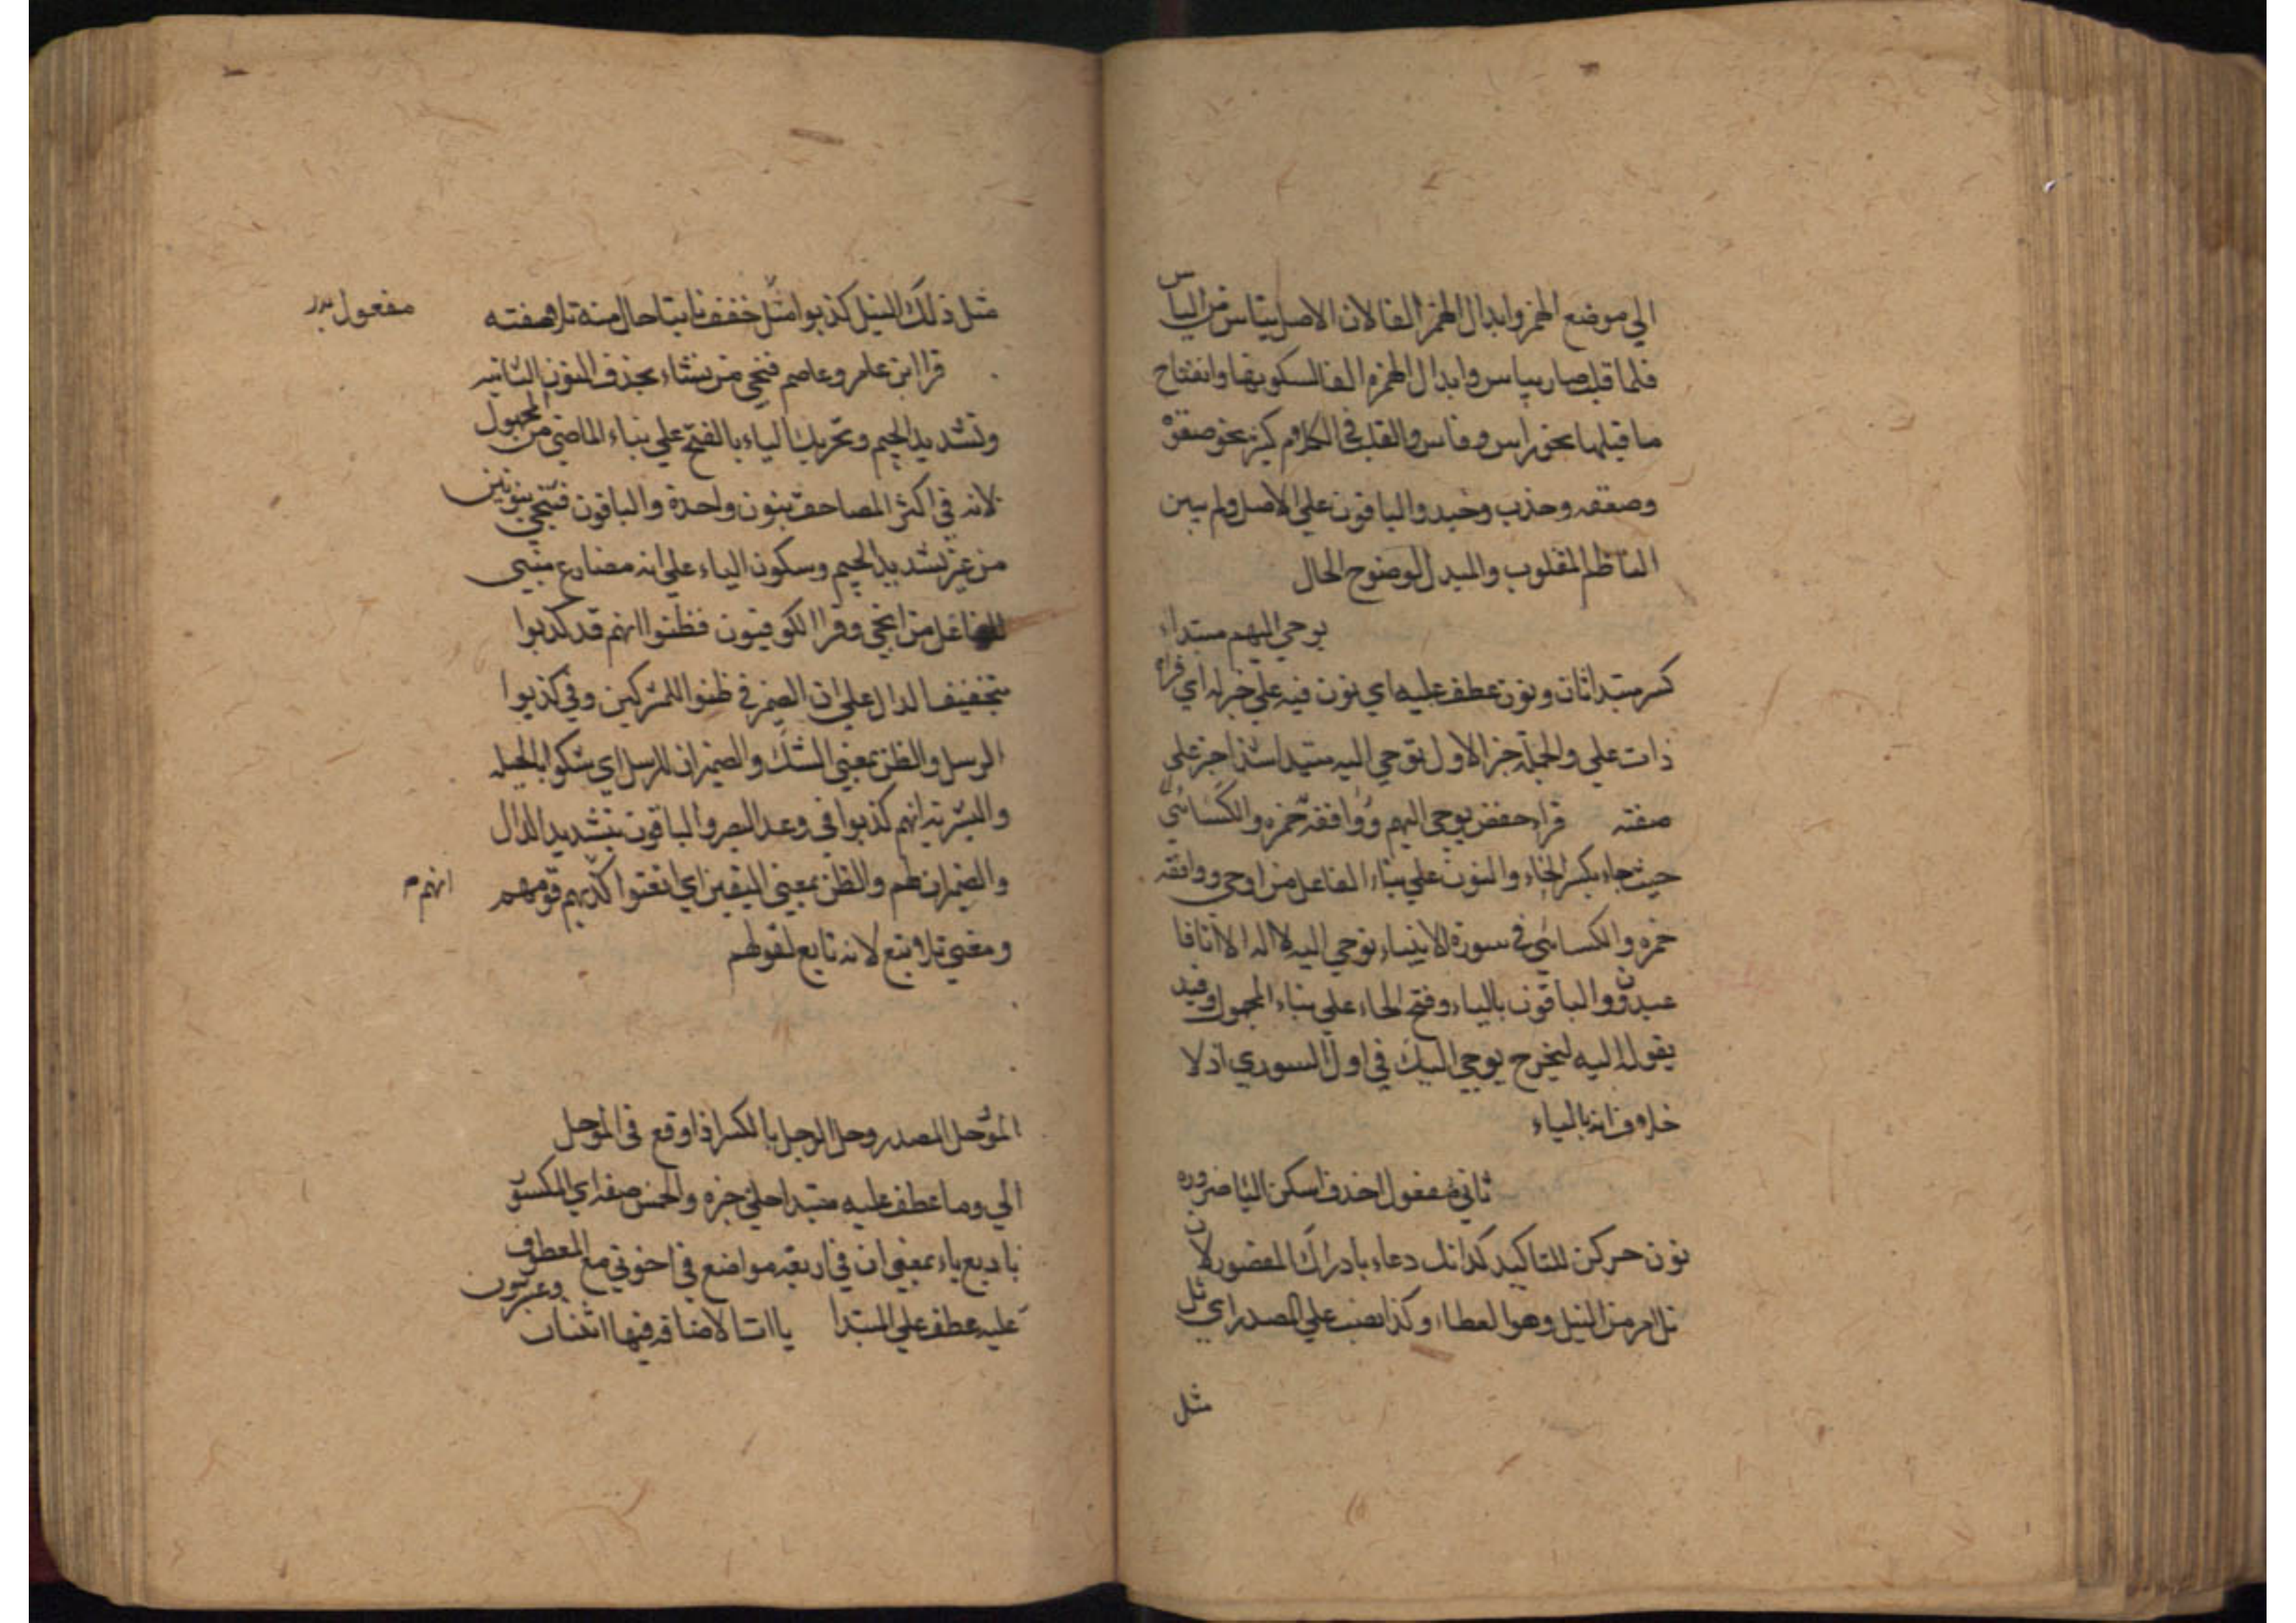 الي موضع الهمز وابدال الهمز الفا لان الاصل يياس من الياس
فلما قلب صار يياس وابدال الهمزه الفا لسكونها وانفتاح
ما قبلها نحو راس وفاس والقلب في الكلام كثير نحو صقعة
وصقعه وجذب وجبد والباقون علي الاصل ولم يبين
الناظم المقلوب والمبدل لوضوح الحال
يوحي اليهم مبتداء
كسر مبتدا ثان ونون عطف عليه اي نون فيه علي خبر له اي قراه
ذات علي والجملة خبر الاول نوحي اليه مبتدا شذا خبر علي
صفته قراء حفص نوحي اليهم ووافقه حمزه والكسائي
حيث جاء بكسر الحاء والنون علي بناء الفاعل من اوحي ووافقه
حمزه والكسائي في سورة الانبياء نوحي اليه لا اله الا انا فا
عبدون والباقون بالياء وفتح الحاء علي بناء المجهول وقيد
يقوله اليه ليخرج يوحي اليك في اول السوري اذ لا
خلاف انه بالياء
ثاني مفعول احذف اسكن اليا ضروره
نون حركن للتاكيد كذا نل دعاء بادراك المقصور لان
نل امر من النيل وهو العطاء وكذا نصب علي المصدر اي نل
مثل
مثل ذلك النيل كذبوا مثل خفف ثابتا حال منه تلا صفته
مفعول
قرا ابن عامر وعاصم فنجي من نشاء بحذف النون الثانيه
وتشديد الجيم وتحريك الياء بالفتح علي بناء الماضي من المجهول
لانه في اكثر المصاحف بنون واحدة والباقون فننجي بنونين
من غير تشديد الجيم وسكون الياء علي انه مضارع مبني
للفاعل من انجي وقرا الكوفيون فظنوا انهم قد كذبوا
بتخفيف الدال علي ان الضمير في ظنوا للمشركين وفي كذبوا
الرسل والظن بمعني الشك والضميران للرسل اي شكوا بالجبله
والبشريه انهم كذبوا في وعد النصر والباقون بتشديد الدال
والضميران لهم والظن بمعني اليقين اي اتقنوا كذبهم قومهم
انهم
ومعني تلا تبع لانه تابع لقولهم
الموحل المصدر وحل الرجل بالكسر اذا وقع في الموحل
اني وما عطف عليه مبتدا حلي خبره والخمس صفه اي المكسور
با ربع ياء بمعني ان في اربعه مواضع في اخوتي مع المعطوف
عليه عطف علي المبتدا ياات الاضافه فيها اثنتان وعشرون